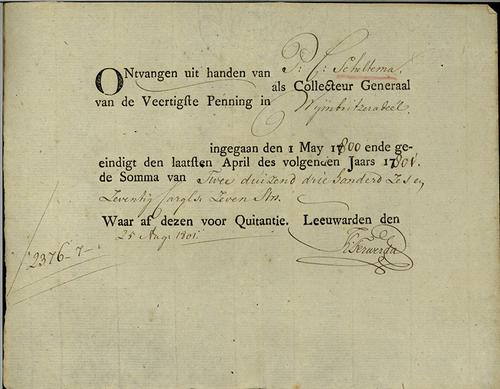 ONtvangen uit handen van P: C: Scheltema.
als Collecteur Generaal
van de Veertigste Penning in Wijmbritzeradeel
ingegaan den 1 May 1800 ende ge-
eindigt den laatsten April des volgenden Jaars 1801.
de Somma van Twee duizend drie Honderd Zes en
Zeventig Cargls: Zeven Strs.
Waar af dezen voor Quitantie. Leeuwarden den
25 Aug: 1801.
2376-7-